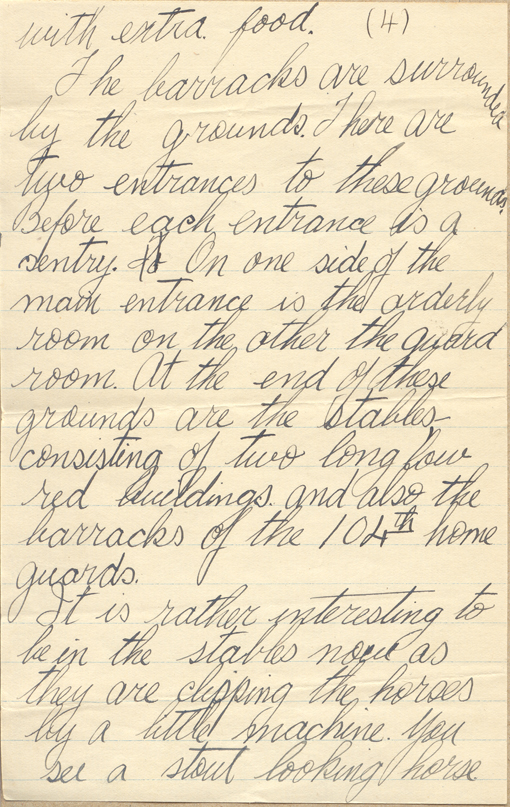 with extra. food. (4)
The barracks are surrounded
by the grounds. There are
two entrances to these grounds.
Before each entrance is a
sentry. On one side of the
main entrance is the orderly
room on the other the guard
room. At the end of these
grounds are the stables,
consisting of two long low
red buildings. and also the
barracks of the 104th home
guards.
It is rather interesting to
be in the stables now as
they are clipping the horses
by a little machine. You
see a stout looking horse